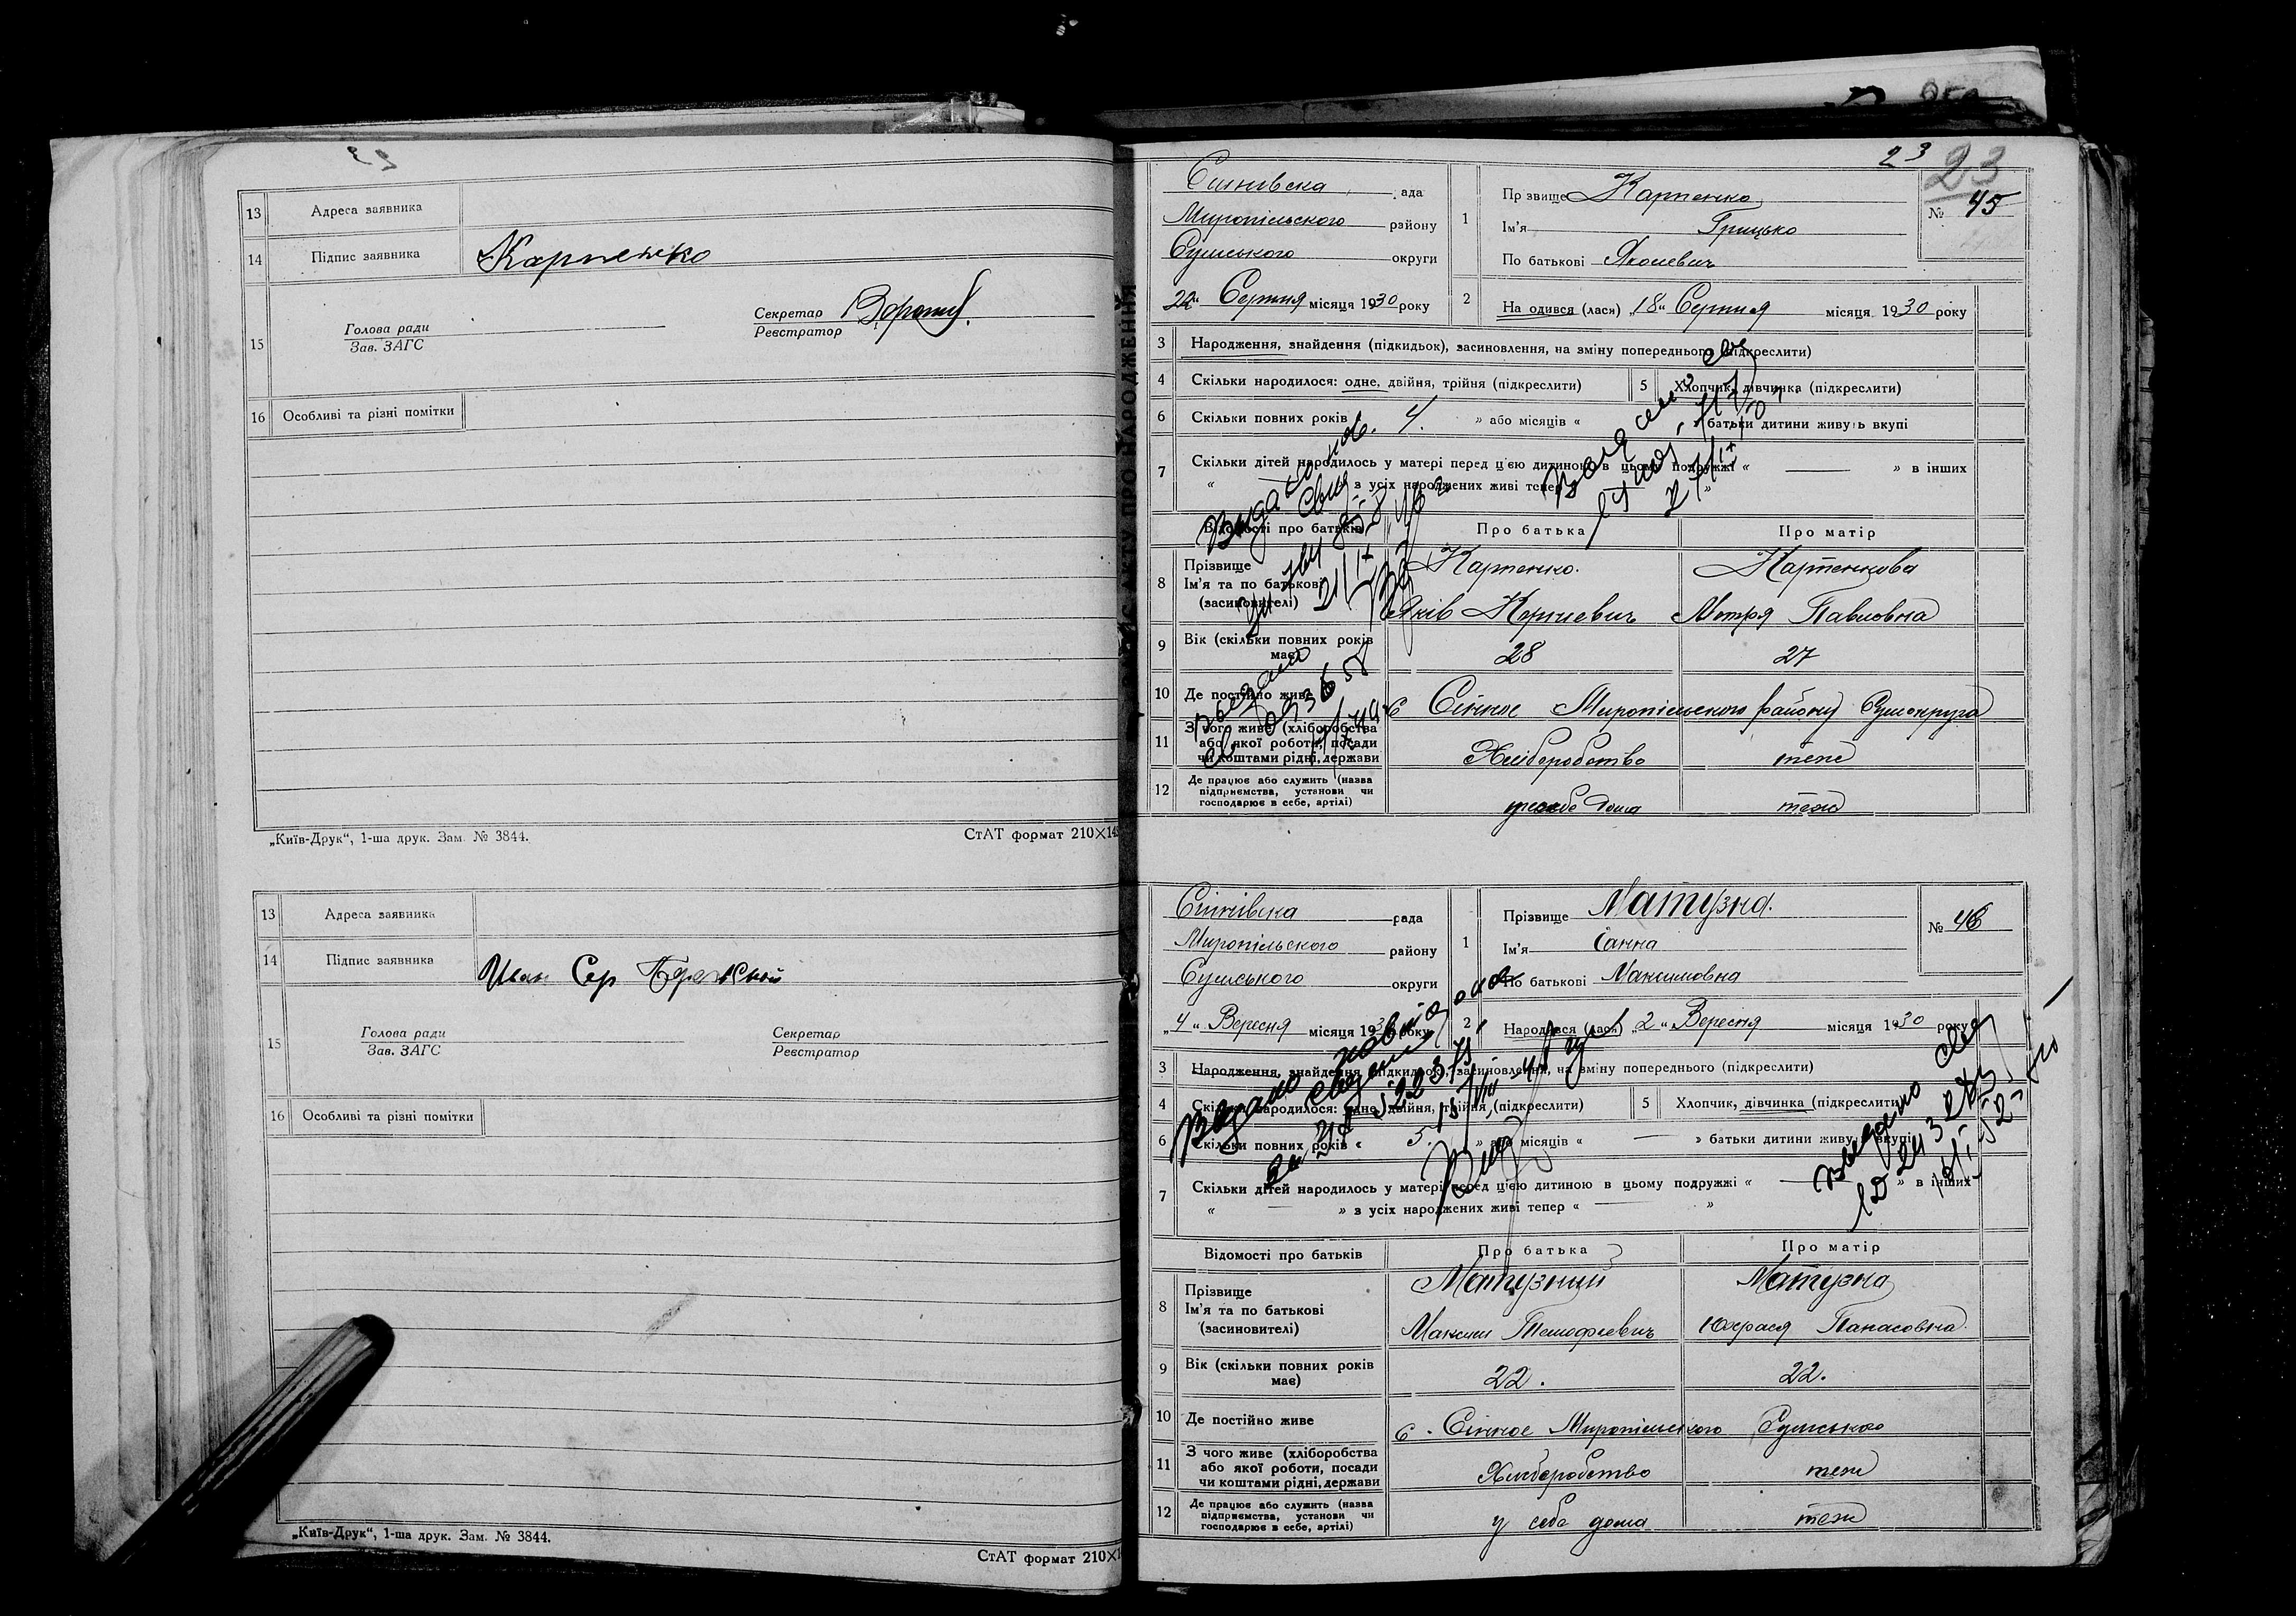 13 Адреса заявника
14 Підпис заявника Карпенко
15 Голова ради
Зав. ЗАГС
Секретар
Реєстратор
16 Особливі та різні помітки
„Київ-Друк“, 1-ша друк. Зам. № 3844.
СтАТ формат 210×14
13 Адреса заявника
14 Підпис заявника Иван Сер
15 Голова ради
Зав. ЗАГС
Секретар
Реєстратор
16 Особливі та різні помітки
„Київ-Друк“, 1-ша друк. Зам. № 3844.
СтАТ формат 210×1
23 23
АКТУ ПРО НАРОДЖЕННЯ
Сіннівська ада
Миропільського району
Сумського округи
22 „ Серпня місяця 1930 року
1 Пр звище Карпенко
Ім'я Грицько
По батькові Яковлевич
№ 45
2 На одився (лася) „18“ Серпня місяця 1930 року
3 Народження, знайдення (підкидьок), засиновлення, на зміну попереднього (підкреслити)
4 Скільки народилося: одне, двійня, трійня (підкреслити) 5 Хлопчик, дівчинка (підкреслити)
6 Скільки повних років 4. » або місяців « батьки дитини живуть вкупі
7 Скільки дітей народилось у матері перед цією дитиною в цьому подружжі « — » в інших
« в усіх народжених живі тепер »
Відомості про батьків Про батька Про матір
8 Прізвище Карпенко. Карпенкова
Ім'я та по батькові
(засиновителі) Яків Мотря Павловна
9 Вік (скільки повних років має) 28 27
10 Де постійно живе с Сінное Миропільського району Сумокруга
11 З чого живе (хліборобства
або якої роботи, посади
чи коштами рідні, держави Хліборобство теж
12 Де працює або служить (назва
підприємства, установи чи
господарює в себе, артілі) у себе дома теж
Сіннівска рада
Миропільського району
Сумського округи
„4“ Вересня місяця 1930 року
1 Прізвище Матузна.
Ім'я Ганна
По батькові Максимовна
№ 46
2 Народився (лася) „2“ Вересня місяця 1930 року
3 Народження, знайдення (підкидьок), засиновлення, на зміну попереднього (підкреслити)
4 Скільки народилося: одне, двійня, трійня, (підкреслити) 5 Хлопчик, дівчинка (підкреслити)
6 Скільки повних років « 5. » або місяців « — » батьки дитини живуть вкупі
7 Скільки дітей народилось у матері перед цією дитиною в цьому подружжі « — » в інших
« — » в усіх народжених живі тепер « — »
Відомості про батьків Про батька Про матір
8 Прізвище Матузний Матузна
Ім'я та по батькові
(засиновителі) Максим Тимофеевич Панасовна
9 Вік (скільки повних років має) 22. 22.
10 Де постійно живе с. Сінное Миропільського Сумського
11 З чого живе (хліборобства
або якої роботи, посади
чи коштами рідні, держави Хліборобство теж
12 Де працює або служить (назва
підприємства, установи чи
господарює в себе, артілі) у себе дома теж